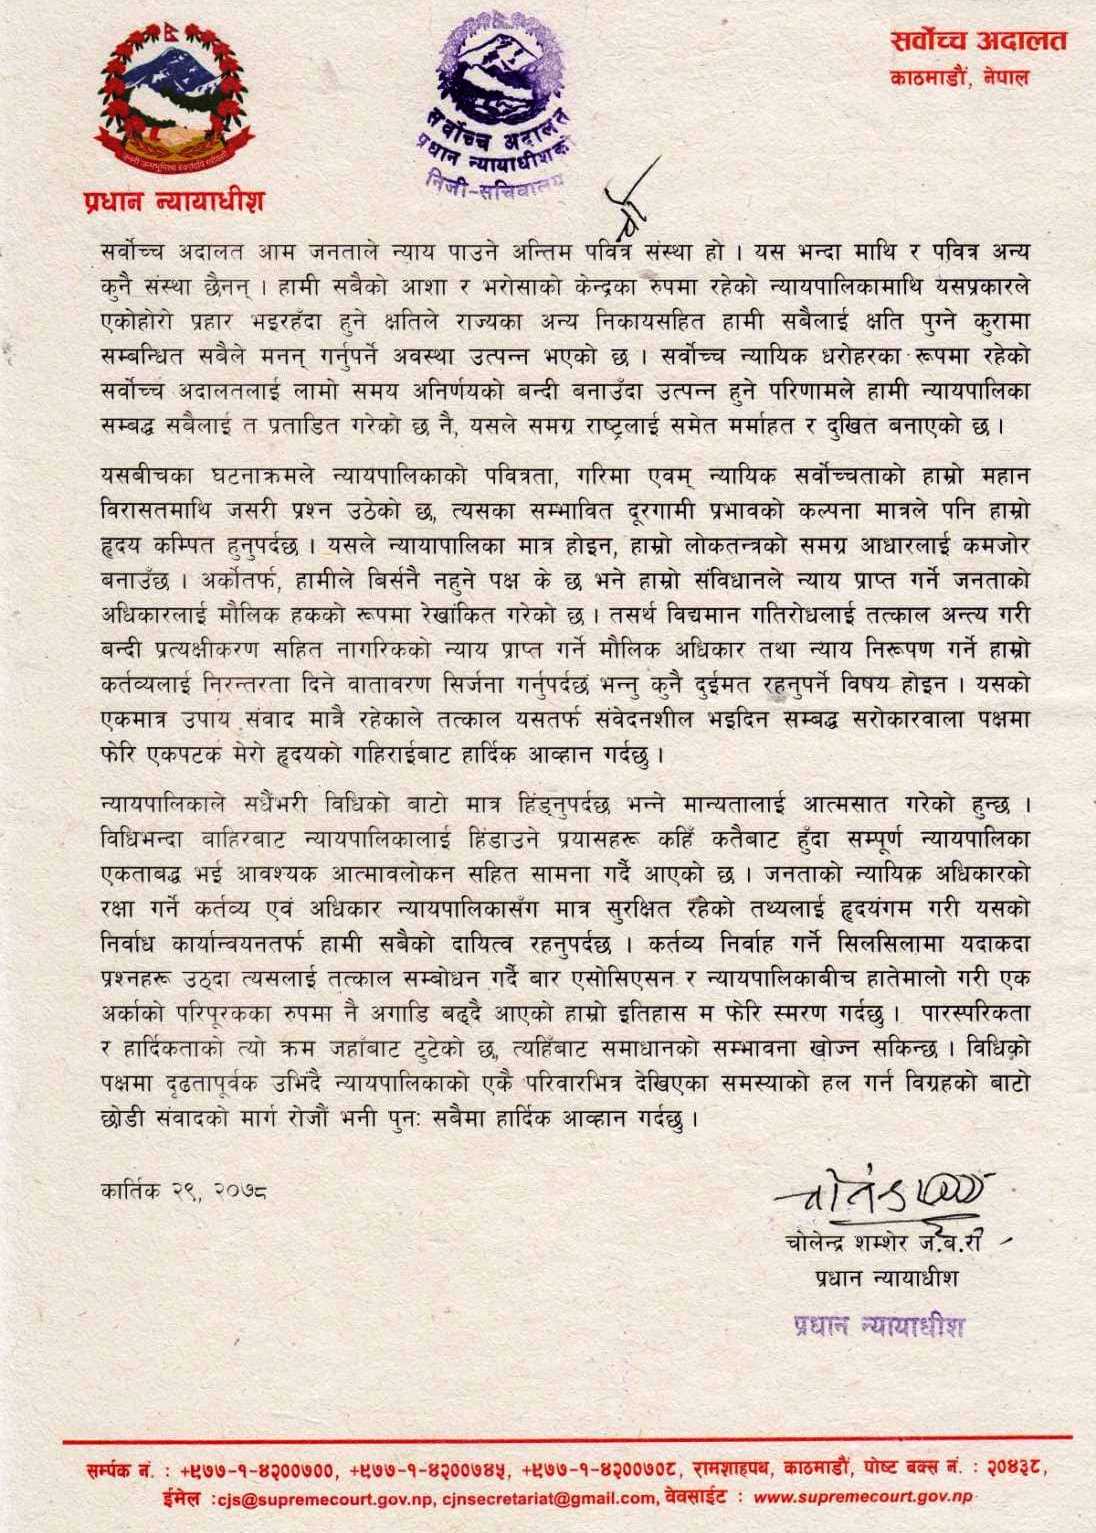 सर्वोच्च अदालत
काठमाडौं, नेपाल
सर्वोच्च अदालत
प्रधान न्यायाधीशको
निजी-सचिवालय
प्रधान न्यायाधीश
सर्वोच्च अदालत आम जनताले न्याय पाउने अन्तिम पवित्र संस्था हो । यस भन्दा माथि र पवित्र अन्य
कुनै संस्था छैनन् । हामी सबैको आशा र भरोसाको केन्द्रका रुपमा रहेको न्यायपालिकामाथि यसप्रकारले
एकोहोरो प्रहार भइरहँदा हुने क्षतिले राज्यका अन्य निकायसहित हामी सबैलाई क्षति पुग्ने कुरामा
सम्बन्धित सबैले मनन् गर्नुपर्ने अवस्था उत्पन्न भएको छ । सर्वोच्च न्यायिक धरोहरका रूपमा रहेको
सर्वोच्च अदालतलाई लामो समय अनिर्णयको बन्दी बनाउँदा उत्पन्न हुने परिणामले हामी न्यायपालिका
सम्बद्ध सबैलाई त प्रताडित गरेको छ नै, यसले समग्र राष्ट्रलाई समेत मर्माहत र दुखित बनाएको छ ।
यसबीचका घटनाक्रमले न्यायपालिकाको पवित्रता, गरिमा एवम् न्यायिक सर्वोच्चताको हाम्रो महान
विरासतमाथि जसरी प्रश्न उठेको छ, त्यसका सम्भावित दूरगामी प्रभावको कल्पना मात्रले पनि हाम्रो
हृदय कम्पित हुनुपर्दछ । यसले न्यायापालिका मात्र होइन, हाम्रो लोकतन्त्रको समग्र आधारलाई कमजोर
बनाउँछ । अर्कोतर्फ, हामीले बिर्सनै नहुने पक्ष के छ भने हाम्रो संविधानले न्याय प्राप्त गर्ने जनताको
अधिकारलाई मौलिक हकको रूपमा रेखांकित गरेको छ । तसर्थ विद्यमान गतिरोधलाई तत्काल अन्त्य गरी
बन्दी प्रत्यक्षीकरण सहित नागरिकको न्याय प्राप्त गर्ने मौलिक अधिकार तथा न्याय निरूपण गर्ने हाम्रो
कर्तव्यलाई निरन्तरता दिने वातावरण सिर्जना गर्नुपर्दछ भन्नु कुनै दुईमत रहनुपर्ने विषय होइन । यसको
एकमात्र उपाय संवाद मात्रै रहेकाले तत्काल यसतर्फ संवेदनशील भइदिन सम्बद्ध सरोकारवाला पक्षमा
फेरि एकपटक मेरो हृदयको गहिराईबाट हार्दिक आव्हान गर्दछु ।
न्यायपालिकाले सधैंभरी विधिको बाटो मात्र हिंड्नुपर्दछ भन्ने मान्यतालाई आत्मसात गरेको हुन्छ ।
विधिभन्दा बाहिरबाट न्यायपालिकालाई हिंडाउने प्रयासहरू कहिँ कतैबाट हुँदा सम्पूर्ण न्यायपालिका
एकताबद्ध भई आवश्यक आत्मावलोकन सहित सामना गर्दै आएको छ । जनताको न्यायिक अधिकारको
रक्षा गर्ने कर्तव्य एवं अधिकार न्यायपालिकासँग मात्र सुरक्षित रहेको तथ्यलाई हृदयंगम गरी यसको
निर्वाध कार्यान्वयनतर्फ हामी सबैको दायित्व रहनुपर्दछ । कर्तव्य निर्वाह गर्ने सिलसिलामा यदाकदा
प्रश्नहरू उठ्दा त्यसलाई तत्काल सम्बोधन गर्दै बार एसोसिएसन र न्यायपालिकाबीच हातेमालो गरी एक
अर्काको परिपूरकका रुपमा नै अगाडि बढ्दै आएको हाम्रो इतिहास म फेरि स्मरण गर्दछु । पारस्परिकता
र हार्दिकताको त्यो क्रम जहाँबाट टुटेको छ, त्यहिँबाट समाधानको सम्भावना खोज्न सकिन्छ । विधिको
पक्षमा दृढतापूर्वक उभिदै न्यायपालिकाको एकै परिवारभित्र देखिएका समस्याको हल गर्न विग्रहको बाटो
छोडी संवादको मार्ग रोजौं भनी पुन: सबैमा हार्दिक आव्हान गर्दछु ।
कार्तिक २९, २०७८
चोलेन्द्र शम्शेर ज.ब.रा
प्रधान न्यायाधीश
प्रधान न्यायाधीश
सर्म्पक नं. : +९७७-१-४२००७००, +९७७-१-४२००७४५, +९७७-१-४२००७०८, रामशाहपथ, काठमाडौं, पोष्ट बक्स नं. : २०४३८,
ईमेल :cjs@supremecourt.gov.np, cjnsecretariat@gmail.com, वेवसाईट : www.supremecourt.gov.np